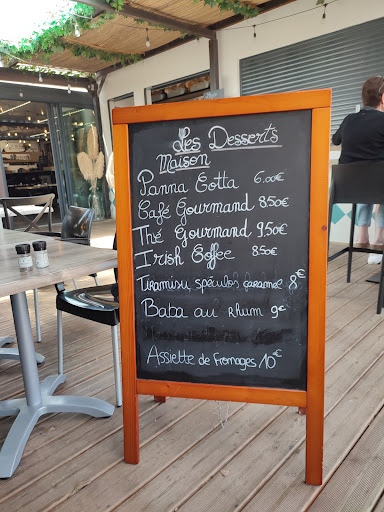 Les Desserts
Maison
Panna Cotta 6.00€
Café Gourmand 8.50€
Thé Gourmand 9.50€
Irish Coffee 8.50€
Tiramisu spéculos caramel 8€
Baba au rhum 9€
Assiette de fromages 10€